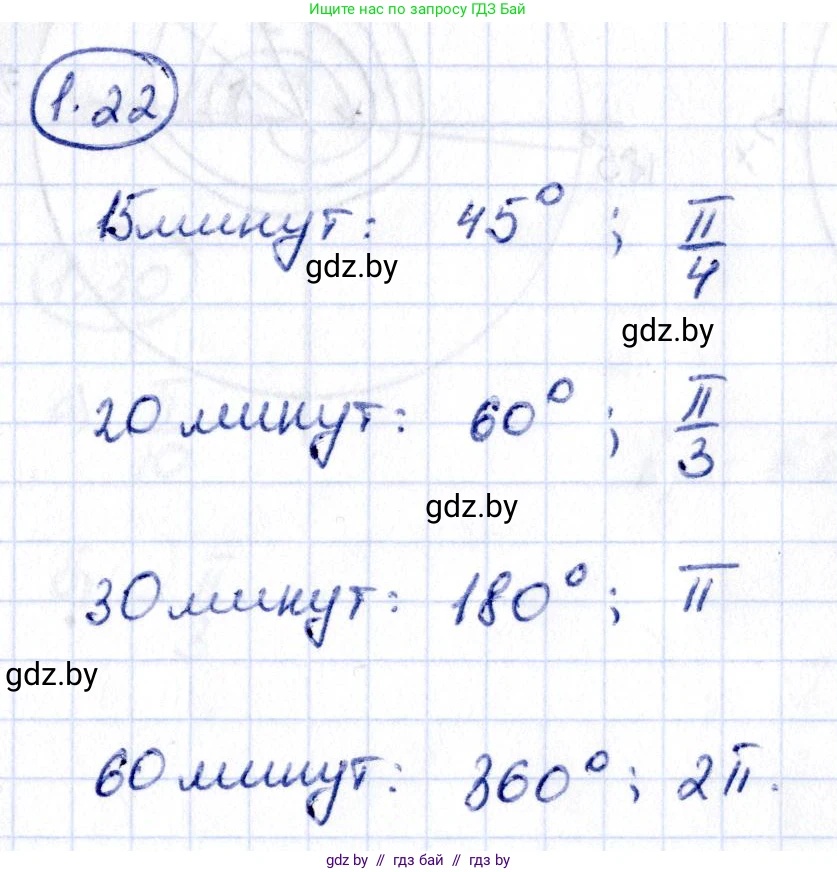 Ищите нас по запросу ГДЗ Бай
1.22
15 минут: 45°; π/4
gdz.by
gdz.by
20 минут: 60°; π/3
gdz.by
30 минут: 180°; π
gdz.by
60 минут: 360°; 2π.
gdz.by // гдз бай // гдз by